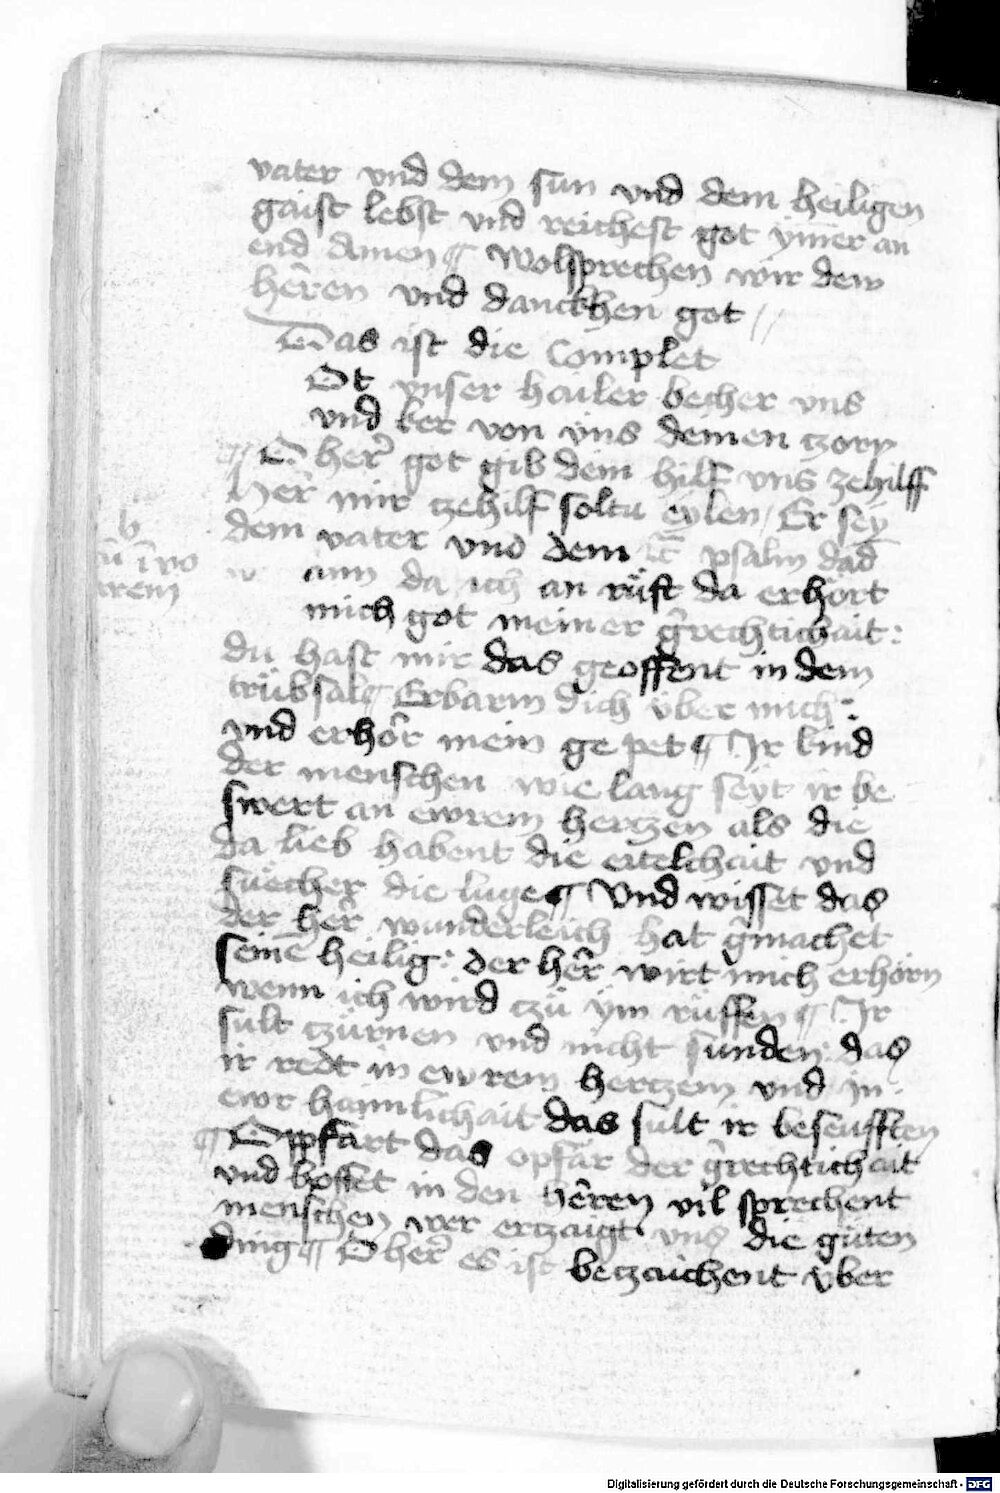 vater vnd dem sun vnd dem heiligen
gaist lebst vnd reichest got ym̄er an
end amen ¶ Wolsprechen wir dem
hêren vnd danckhen got //
Das ist die Complet
Ot vnser hailer becher vns
vnd ker von vns deinen tzorn
¶ O her̃ got gib dein hilf vns zehilff
Her̃ mir tzehilf soltu eylen / Er sey
dem vater vnd dem psalm dad
ann da ich an rüft da erhört
mich got meiner g̃rechtichait :
du hast mir das geoffent in dem
trübsal ¶ Erbarm dich über mich :
vnd erhôr mein ge pet ¶ Ir kind
der menschen wie lang seyt ir be
swert an ewrem hertzen als die
da lieb habent die eitelchait vnd
suecher die luge ¶ Vnd wisset das
der hêr wunderleich hat g̃machet
seinē heilig : der hêr wirt mich erhörn
wenn ich wird tzü ym rüffen ¶ Ir
sult tzürnen vnd nicht sunden : das
ir redt in ewrem hertzem vnd in
ewr haimlichait das sult ir beseufften
¶ Oppfart das opfar der g̃rechtichait
vnd hoffet in den hêren vil sprechent
menschen wer ertzaigt vns die guten
ding ¶ O her̃ es ist betzaichent vber